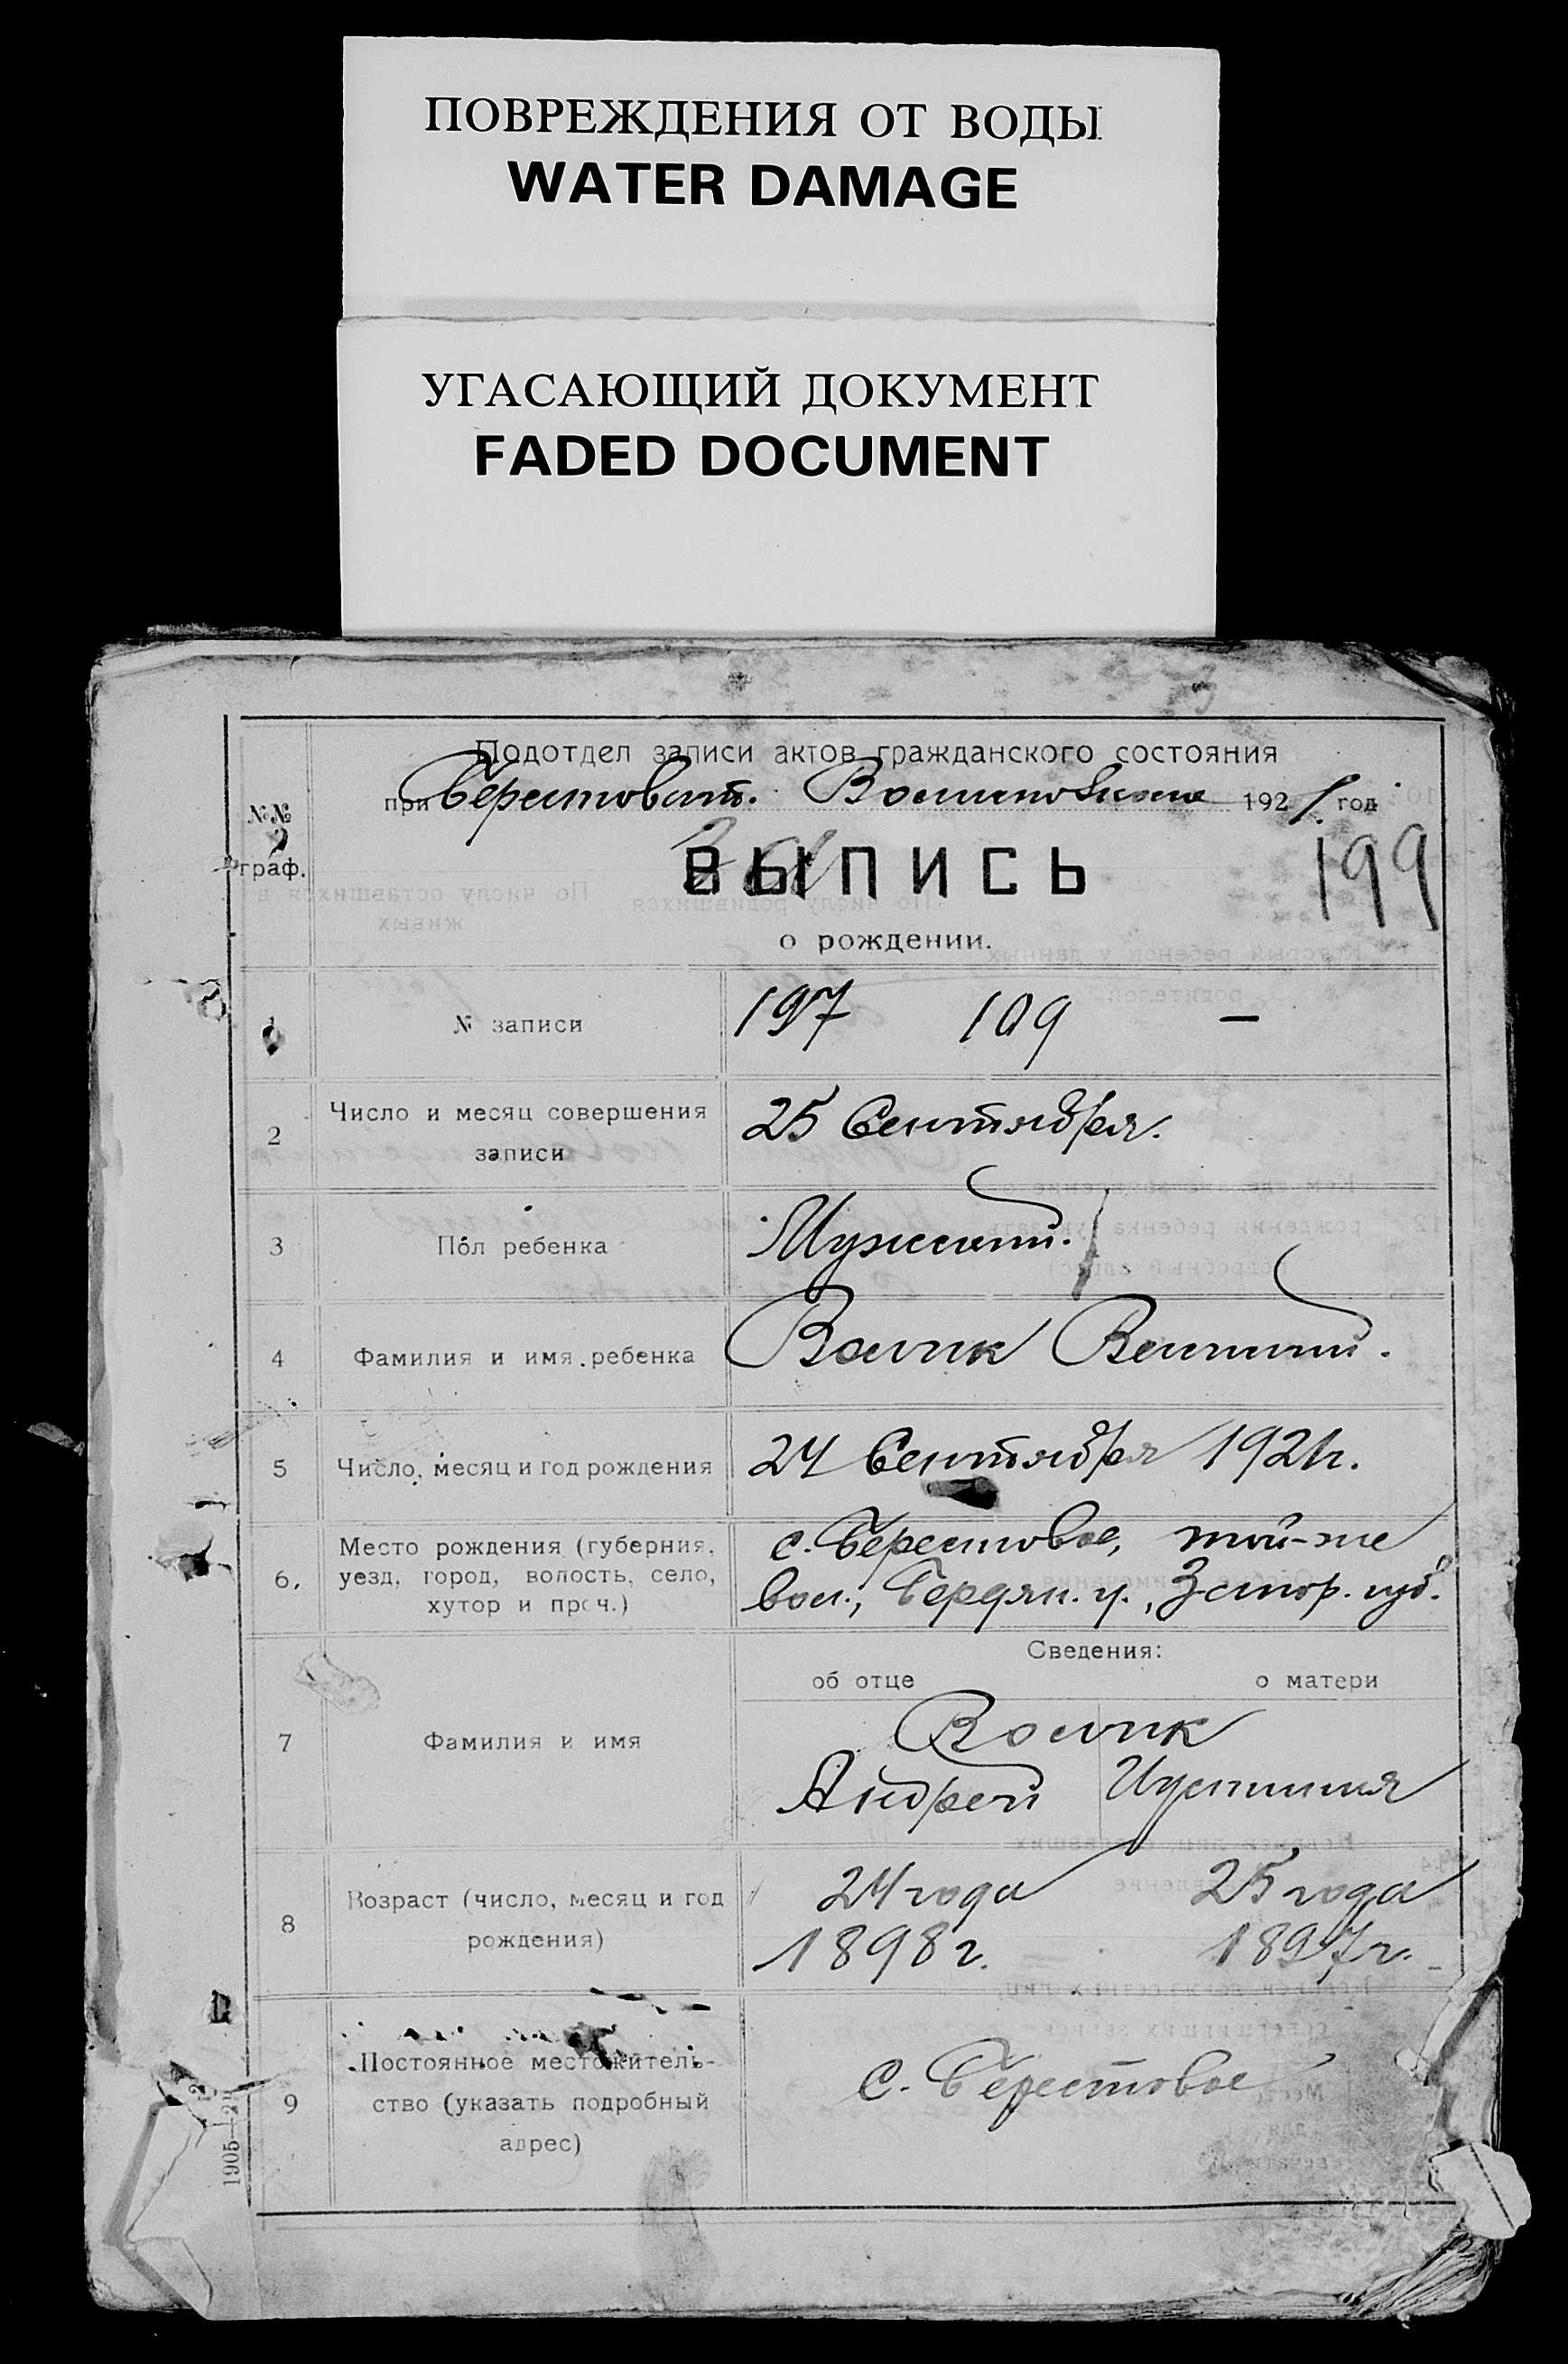 ПОВРЕЖДЕНИЯ ОТ ВОДЫ
WATER DAMAGE
УГАСАЮЩИЙ ДОКУМЕНТ
FADED DOCUMENT
Подотдел записи актов гражданского состояния
при Берестоват. 1921 год
№№
граф.
ВЫПИСЬ
199
о рождении.
1 № записи 197 109 —
2 Число и месяц совершения
записи
25 Сентября.
3 Пол ребенка Мужской.
4 Фамилия и имя ребенка Волик
5 Число, месяц и год рождения 24 Сентября 1921г.
6. Место рождения (губерния,
уезд, город, волость, село,
хутор и проч.)
с. Берестовое, той-же
вол., Бердян. у., Запор. губ.
Сведения:
об отце о матери
7 Фамилия и имя
Волик
Андрей Иустиния
8 Возраст (число, месяц и год
рождения)
24 года 25 года
1898 г. 1897 г.
9 Постоянное местожитель-
ство (указать подробный
адрес)
с. Берестовое
1905—21